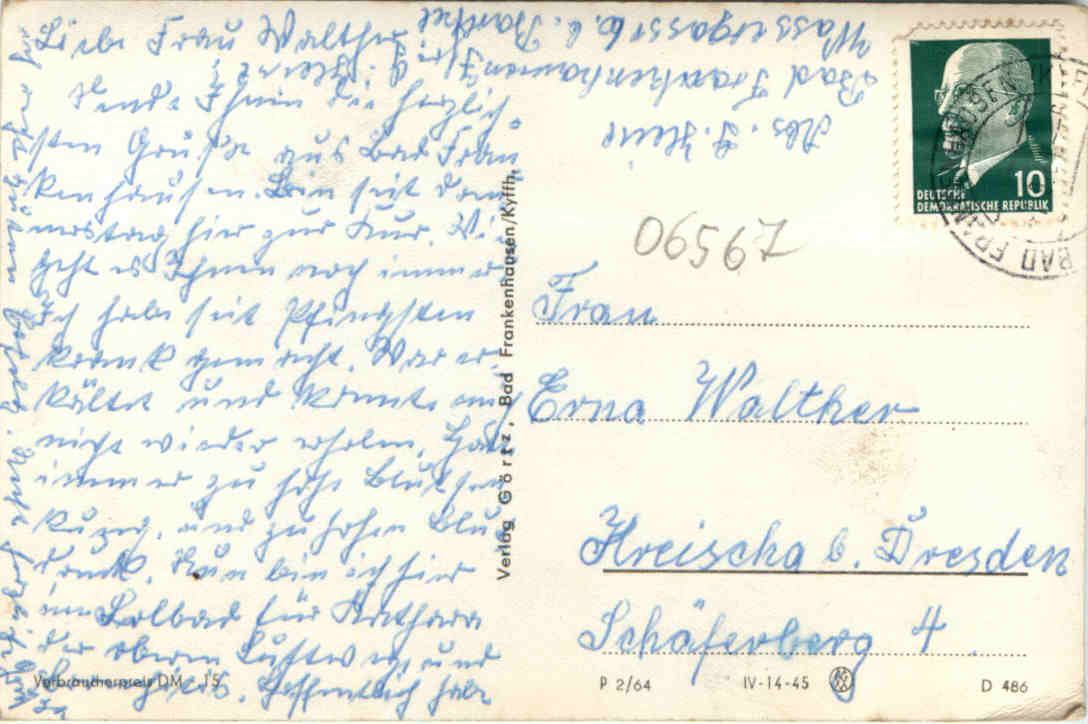 Liebe Frau Walther
Sende Ihnen die herzlich-
sten Grüße aus Bad Fran
kenhausen. Bin seit Don
nerstag hier zur Kur. Wie
geht es Ihnen noch immer
Ich habe seit Pfingsten
krank gemacht. War er-
kältet und konnte mich
nicht wieder erholen. Habe
immer zu hohe Blutsen
kung, und zu hohen Blut
druck. Nun bin ich hier
im Solbad für Katharr
der oberen Luftwege und
Hoffentlich habe
Abs. J.
Bad Frankenhausen
Wassergasse 6 b.
DEUTSCHE
DEMOKRATISCHE REPUBLIK
10
BAD FRANKENHAUSEN
06597
Frau
Erna Walther
Kreischa b. Dresden
Schäferberg 4
Verlag Görtz, Bad Frankenhausen/Kyffh.
Verbraucherpreis DM -,15
P 2/64
IV-14-45
D 486